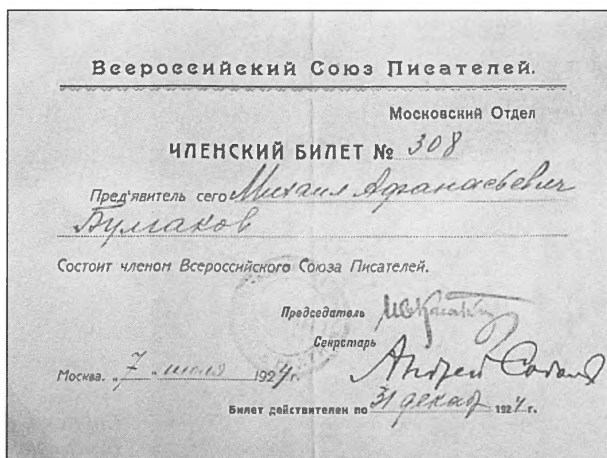 Всероссийский Союз Писателей.
Московский Отдел
ЧЛЕНСКИЙ БИЛЕТ № 308
Пред'явитель сего Михаил Афанасьевич
Булгаков
Состоит членом Всероссийского Союза Писателей.
Председатель
Секретарь Андрей Соболь
Москва. „7" июля 1924 г.
Билет действителен по 31 декаб 1924 г.